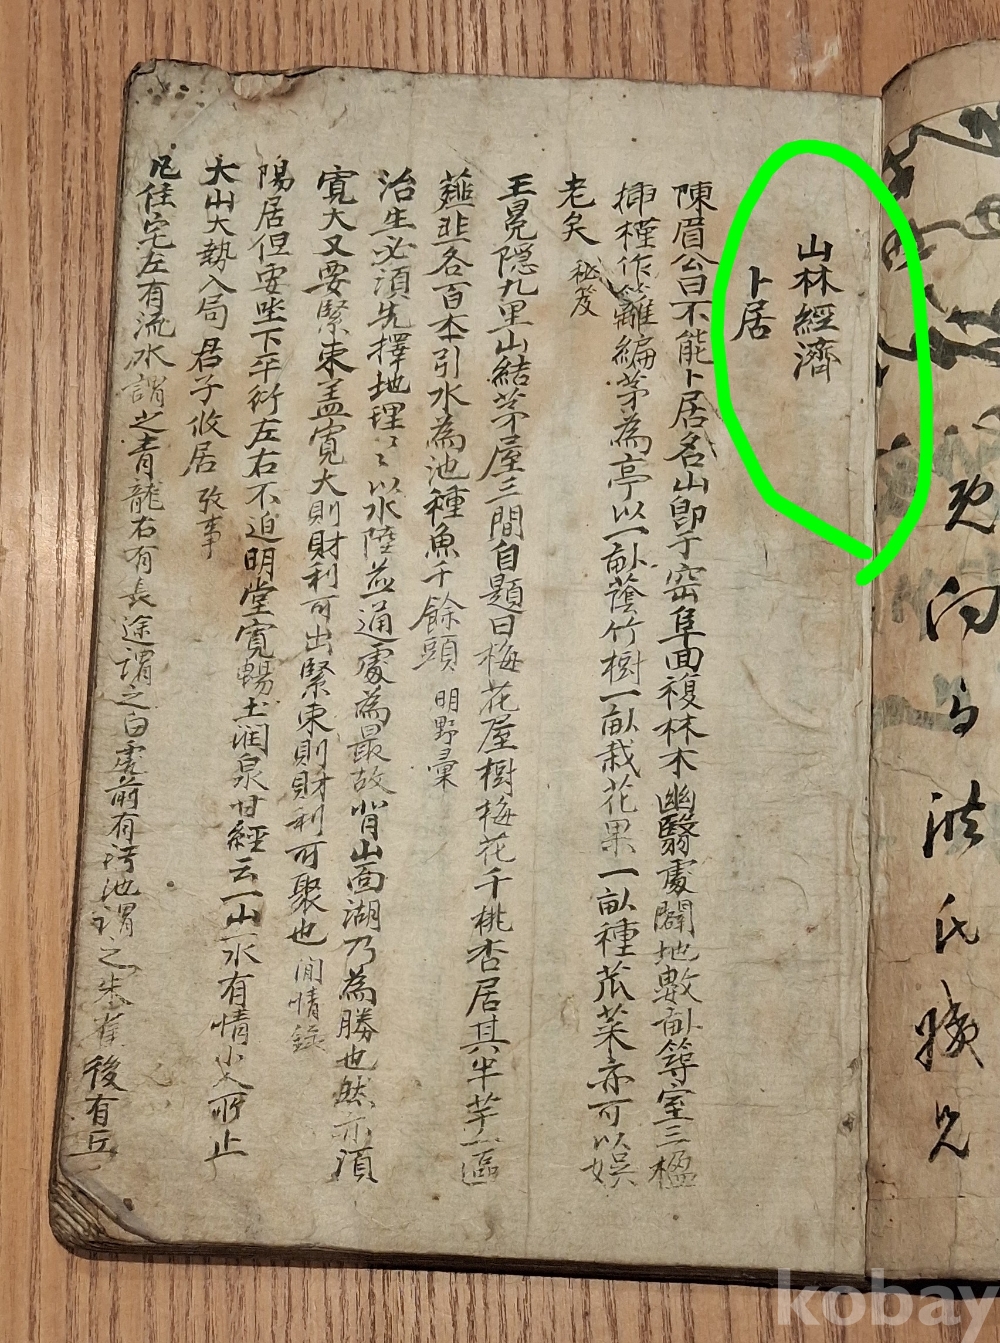 山林經濟
卜居
陳眉公曰不能卜居名山卽于窊阜面複林木幽翳處闢地數畝等室三楹
揷槿作籬編茅為亭以一畝蔭竹樹一畝栽花果一畝種苽菜亦可以娛
老矣 秘笈
王冕隱九里山結茅屋三間自題曰梅花屋樹梅花千桃杏居其半芋一區
薤韭各百本引水為池種魚千餘頭 明野彙
治生必須先擇地理〻以水陸並通處為最故背山面湖乃為勝也然亦須
寬大又要緊束盖寬大則財利可出緊束則財利可聚也 閒情錄
陽居但要坐下平衍左右不迫明堂寬暢土润泉甘經云一山一水有情小人所止
大山大勢入局君子攸居 攷事
凡住宅左有流水謂之青龍右有長途謂之白虎前有汚池謂之朱雀後有丘
兄
kobay